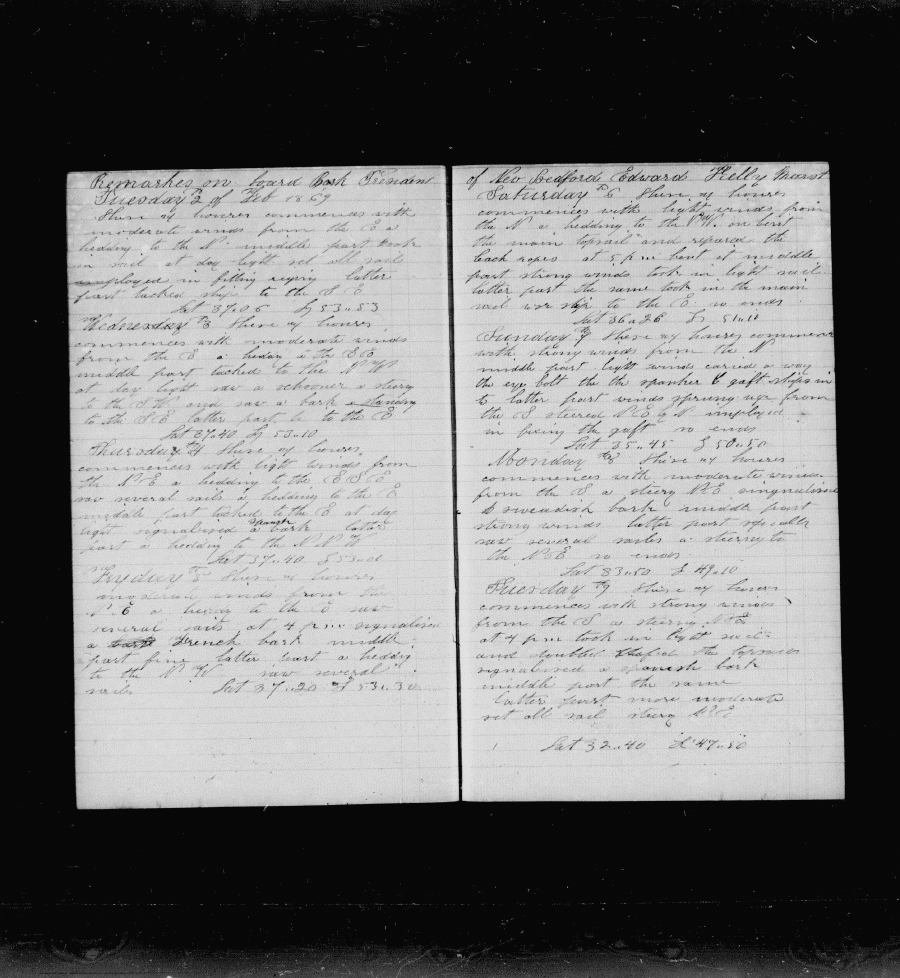 Remarkes on board Bark President
Tuesday 2 of Feb 1869
These 24 houres commences with
moderate winds from the E a
hedding to the N middle part took
in sail at day light set all sail
employed in fitting riging latter
part tacked ship to the S E
Lat 37..06 L 53..53
Wednesday th 3 These 24 houres
commences with moderate winds
from the S a heding to the E
middle part tacked to the N W
at day light saw a schooner a steering
to the S W and saw a bark a standing
to the S E latter part to the E
Lat 37..40 L 53..10
Thursday th 4 These 24 houres
commences with light winds from
the N E a hedding to the E S E
saw several sails a hedding to the E
middle part tacked to the E at day
light signalised a Spanish bark latter
part a hedding to the N N W
Lat 37..40 L 53..00
Fryday th 5 These 24 houres
moderate winds from the
N E a heding to the E saw
several sails at 4 p m signalised
a French bark middle
part fine latter part a hedding
to the N W saw several
sails Lat 37..20 L 53..30
of New Bedford Edward Kelly Marst
Saturday th 6 These 24 houres
commences with light winds from
the N a hedding to the N W. on bent
the main topsail and repared the
back ropes at 5 p m bent it middle
part strong winds took in light sail
latter part the same took in the main
sail wore ship to the E so ends
Lat 36..26 L 51..10
Sunday 7 These 24 houres commences
with strong winds from the N
middle part light winds caried a way
the eye bolt the the spanker gaft stops in
to latter part winds sprung up from
the S steered N E by N imployed
in fixing the gaft so ends
Lat 35..45 L 50..50
Monday th 8 These 24 houres
commences with moderate winds
from the S a steering N E singnalised
a sweadish bark middle part
strong winds latter part squally
saw several sailes a steering to
the N E so ends
Lat 33..50 L 49..10
Tuesday th 9 These 24 houres
commences with strong winds
from the S a steering N E
at 4 p m took in light sail
and doubled the topsails
signalised a spanish bark
middle part the same
latter part more moderate
set all sail steering N E
Lat 32..40 L 47..50